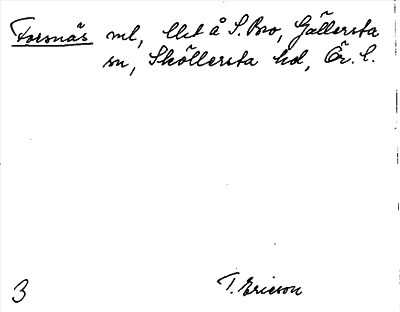 Forsnäs ml, lht å S. Bro, Gällersta
sn, Sköllersta hd, Ör. l.
T. Ericson
3